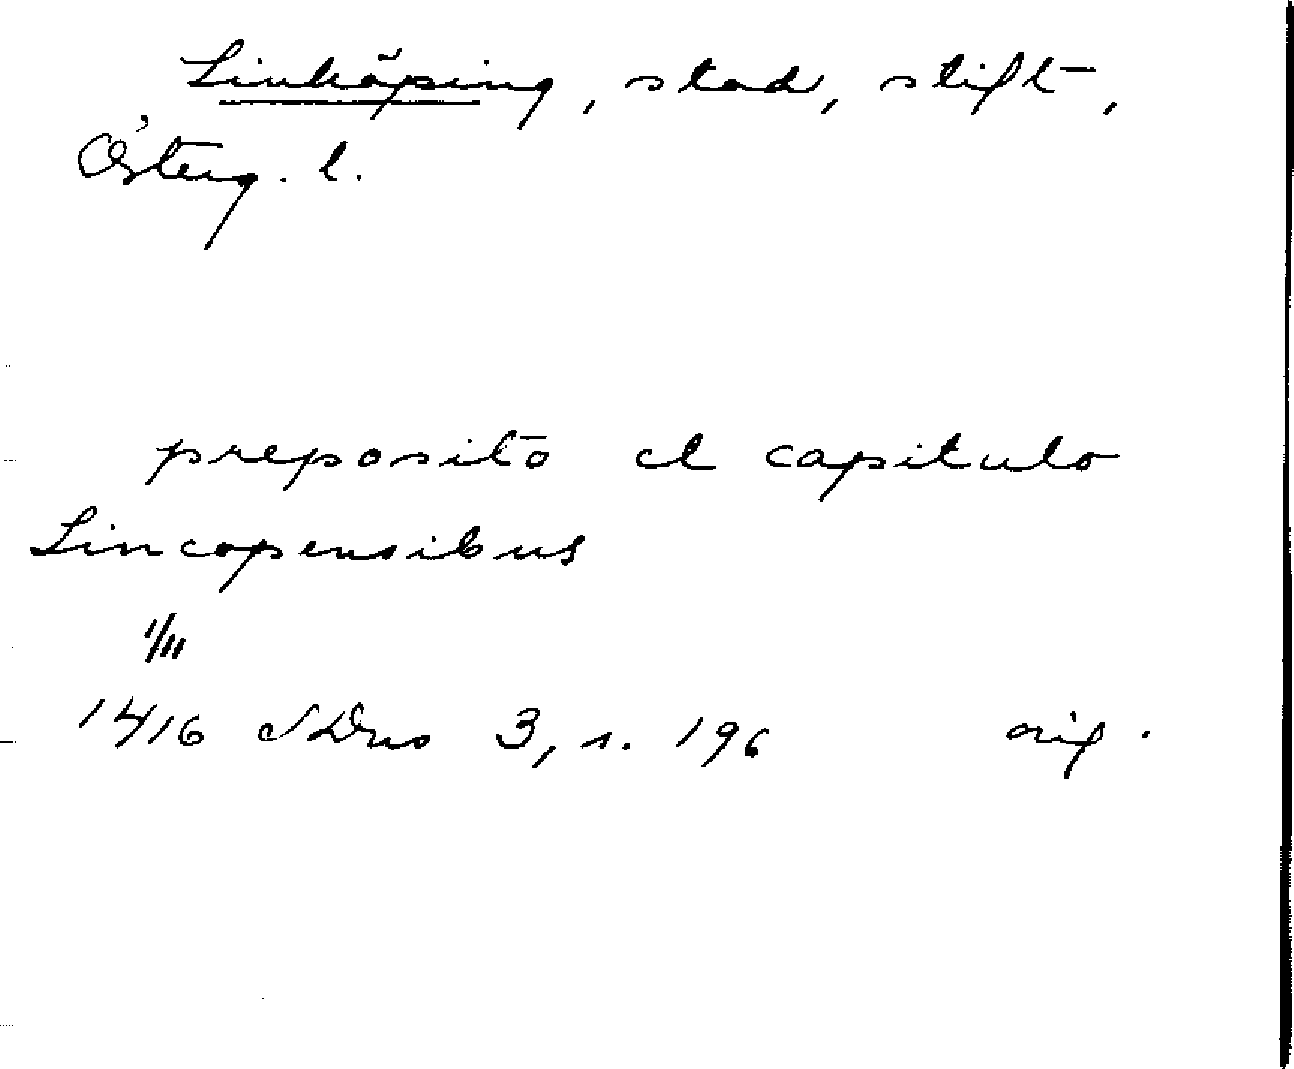 Linköping, stad, stift,
Österg. l.
preposito et capitulo
Lincopensibus
1/11
1416 SDns 3, s. 196 orig.